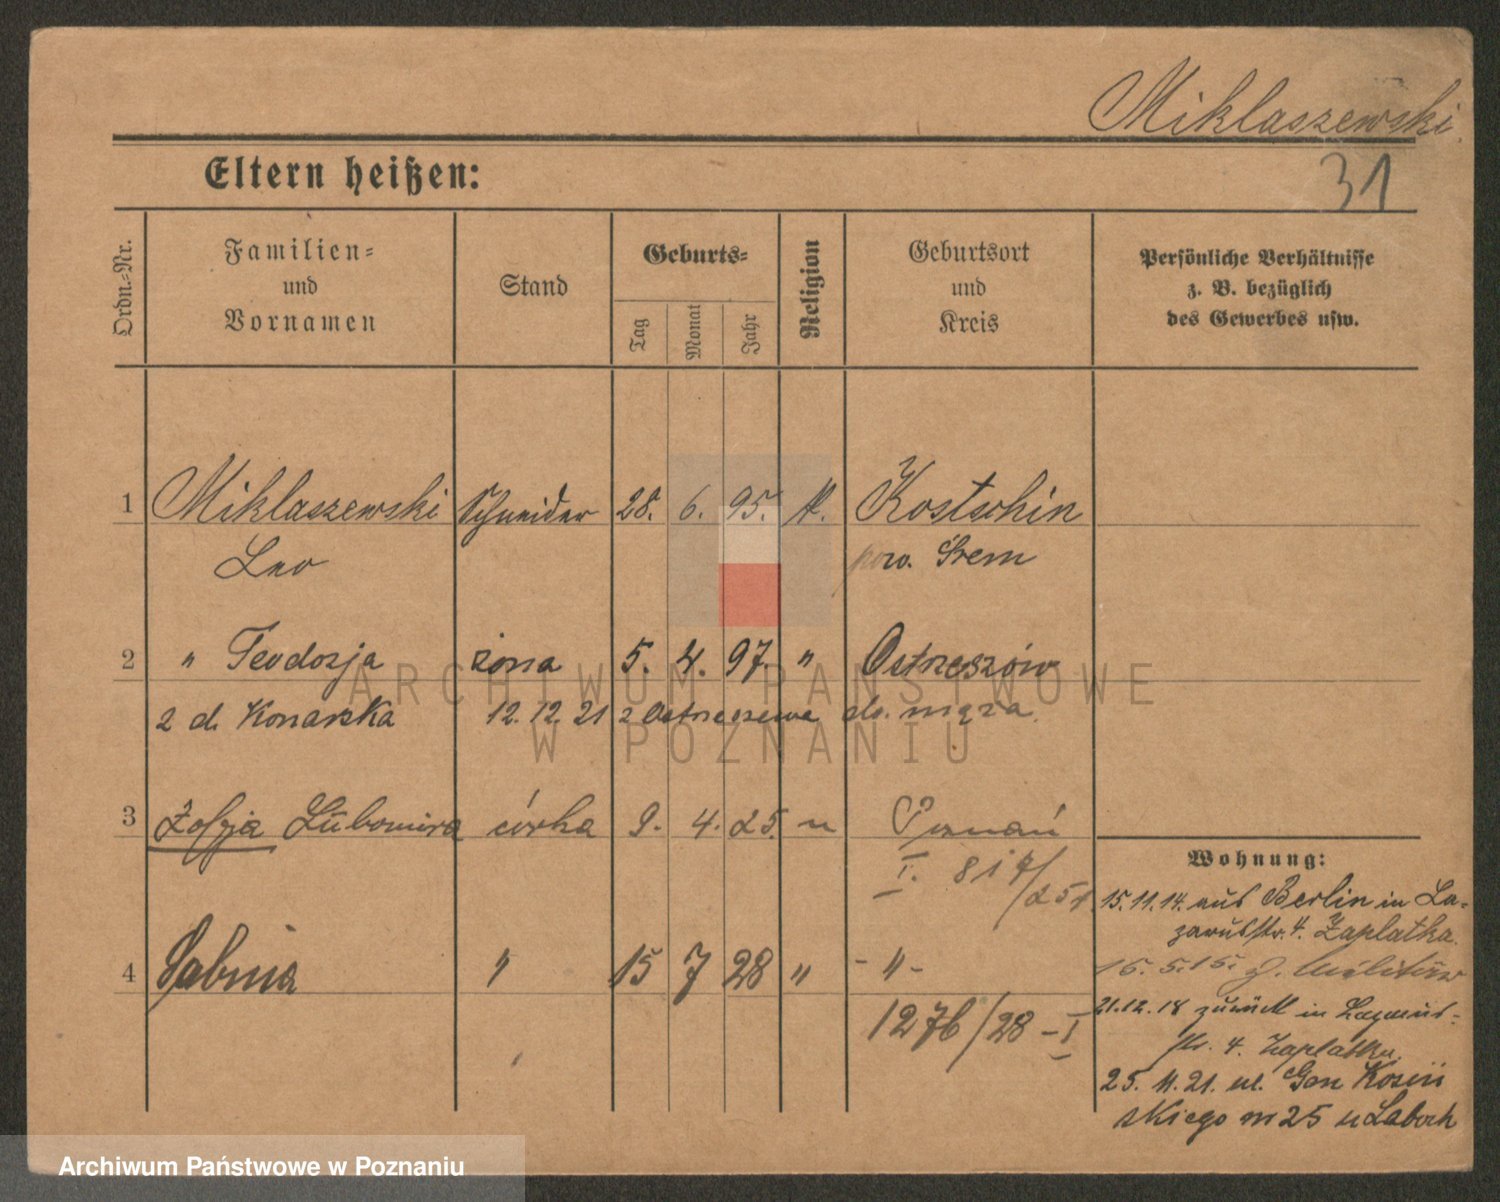 Miklaszewski
Eltern heißen:
31
Ordn.-Nr.
Familien=
und
Vornamen
Stand
Geburts=
Tag
Monat
Jahr
Religion
Geburtsort
und
Kreis
Persönliche Verhältnisse
z. B. bezüglich
des Gewerbes usw.
1 Miklaszewski Schneider 28. 6. 95. k. Kostschin
Leo pow. Śrem
2 " Teodozja żona 5. 4. 97. " Ostrzeszów
z d. Konarska 12.12.21 z Ostrzeszowa do męża
3 Zofja Lubomira córka 9. 4. 25. " Poznań
I. 817/251
4 Sabina " 15 7 28 " - " -
1276/28 - I
Wohnung:
15.11.14. aus Berlin in La-
zarusstr. 4. Zaplatka.
15.5.15. z. Militär
21.12.18 zurück in Lazarus-
str. 4. Zaplatka.
25.11.21. ul. Gen Kosiń
skiego nr 25 u
ARCHIWUM PAŃSTWOWE
W POZNANIU
Archiwum Państwowe w Poznaniu